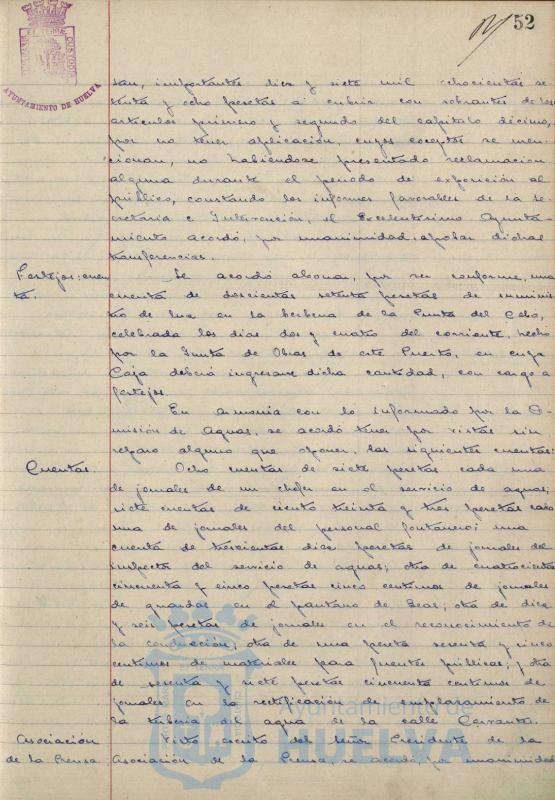 52
AYUNTAMIENTO DE HUELVA
san, importantes diez y siete mil ochocientas se-
tenta y ocho pesetas a cubrir con sobrantes de los
artículos primero y segundo del capítulo décimo,
por no tener aplicación, cuyos conceptos se men-
cionan, no habiéndose presentado reclamación
alguna durante el período de exposición al
público, constando los informes favorables de la se-
cretaría e Intervención, el Excelentísimo Ayunta-
miento acordó, por unanimidad, aprobar dichas
transferencias.
Festejos: cuen
ta.
Se acordó abonar, por ser conforme, una
cuenta de doscientas setenta pesetas de suminis-
tro de luz en la berbena de la Punta del Sebo,
celebrada los días dos y cuatro del corriente, hecho
por la Junta de Obras de este Puerto, en cuya
Caja deberá ingresarse dicha cantidad, con cargo a
festejos.
En armonía con lo informado por la Co-
misión de Aguas, se acordó tener por vistas sin
reparo alguno que oponer, las siguientes cuentas:
Cuentas.
Ocho cuentas de siete pesetas cada una
de jornales de un chofer en el servicio de aguas;
siete cuentas de ciento treinta y tres pesetas cada
una de jornales del personal fontanero; una
cuenta de trescientas diez pesetas de jornales del
inspector del servicio de aguas; otra de cuatrocientas
cincuenta y cinco pesetas cinco céntimos de jornales
de guardas en el pantano de Beas; otra de diez
y seis pesetas de jornales en el reconocimiento de
la conducción; otra de una peseta sesenta y cinco
céntimos de materiales para fuentes públicas; y otra
de sesenta y siete pesetas cincuenta céntimos de
jornales en la rectificación de emplazamiento de
la tubería de agua de la calle Cervantes.
Asociación
de la Prensa
Visto escrito del Señor Presidente de la
Asociación de la Prensa, se acordó, por unanimidad
Ayuntamiento de
HUELVA